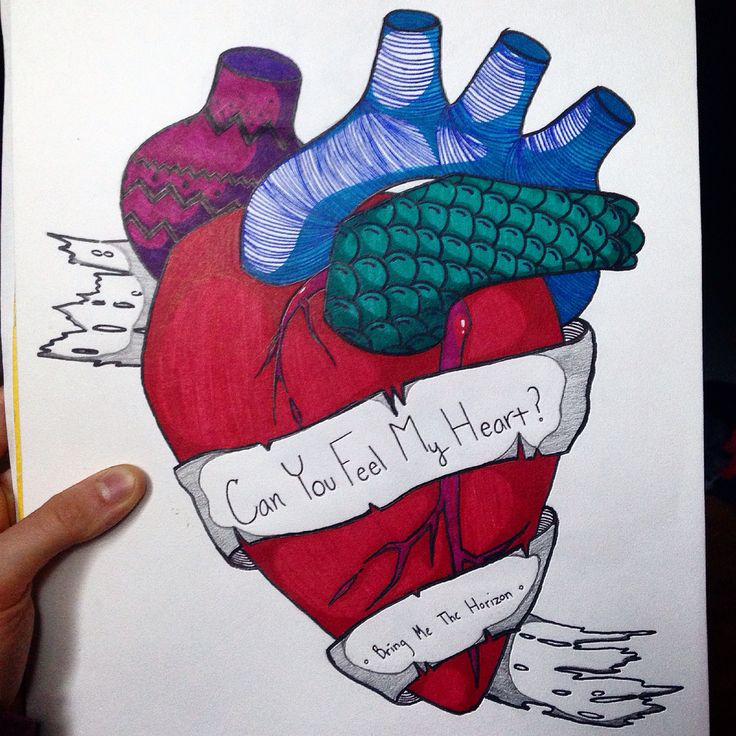 Can You Feel My Heart?
• Bring Me The Horizon •